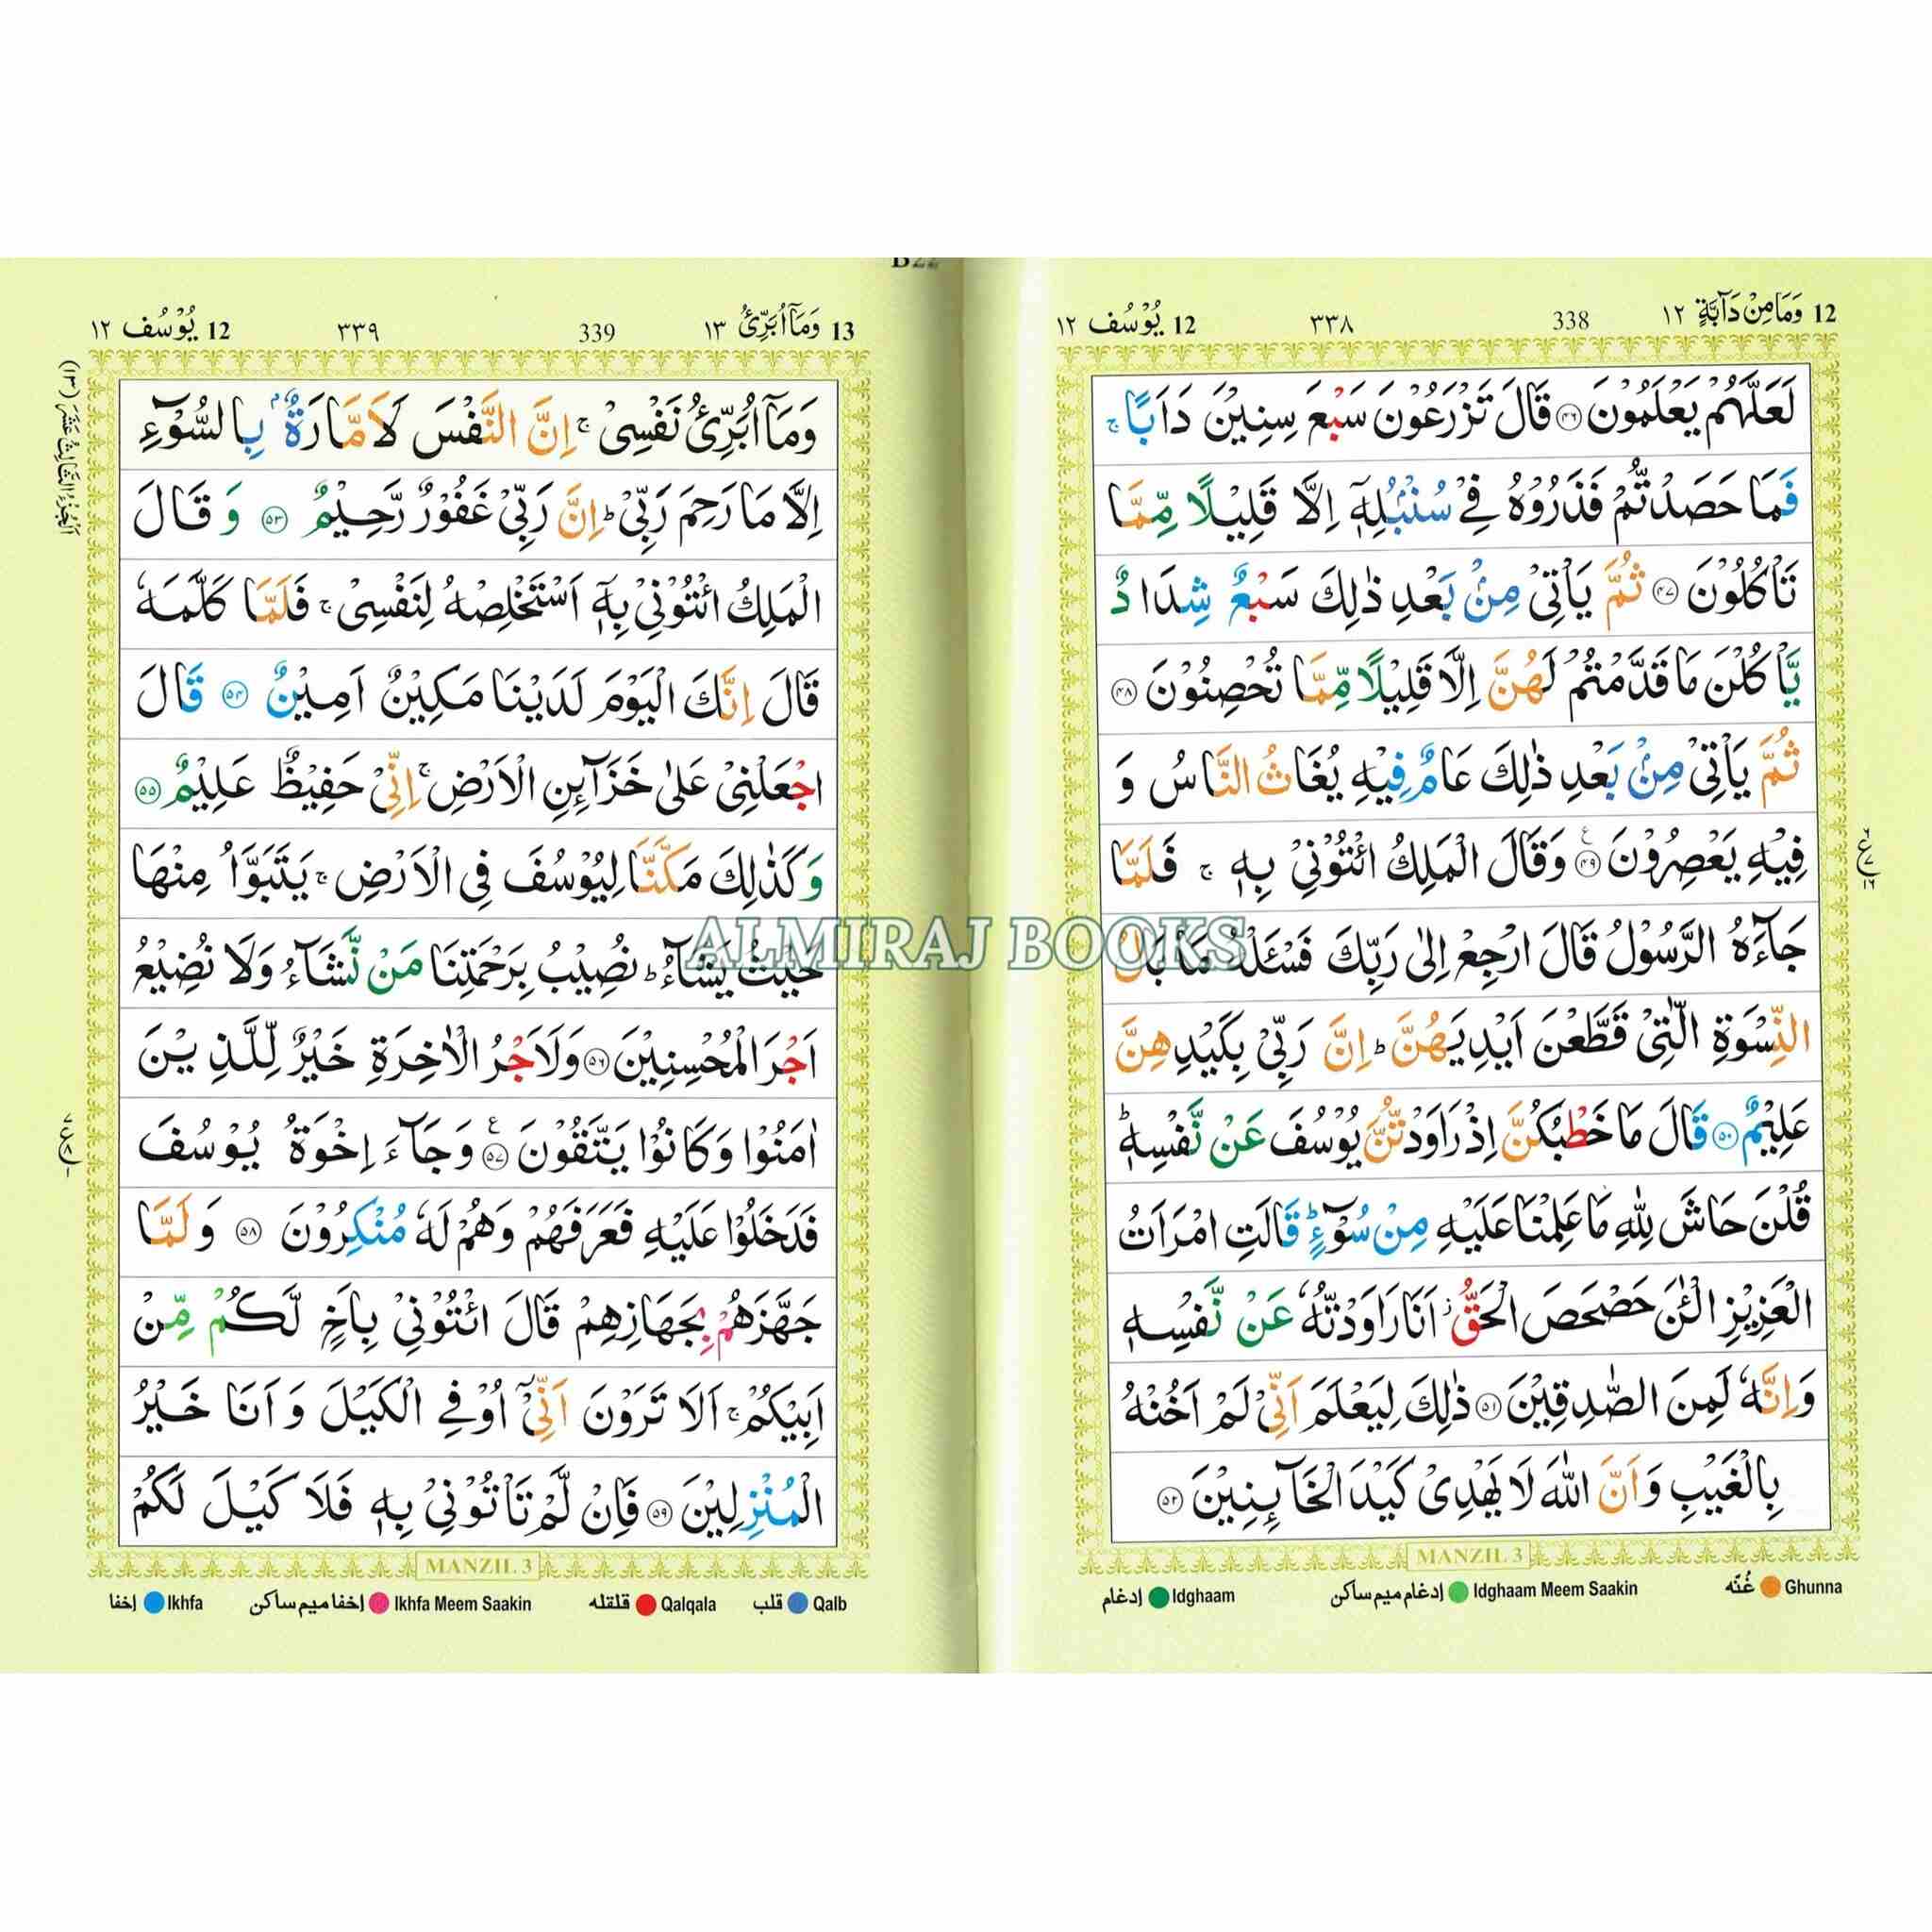 12 وَمَا مِنْ دَآبَّةٍ ١٢
338
٣٣٨
12 يُوْسُف ١٢
لَعَلَّهُمْ يَعْلَمُوْنَ ﴿٤٦﴾ قَالَ تَزْرَعُوْنَ سَبْعَ سِنِيْنَ دَاَبًا ۚ
فَمَا حَصَدْتُّمْ فَذَرُوْهُ فِيْ سُنْۢبُلِهٖٓ اِلَّا قَلِيْلًا مِّمَّا
تَاْكُلُوْنَ ﴿٤٧﴾ ثُمَّ يَاْتِيْ مِنْۢ بَعْدِ ذٰلِكَ سَبْعٌ شِدَادٌ
يَّاْكُلْنَ مَا قَدَّمْتُمْ لَهُنَّ اِلَّا قَلِيْلًا مِّمَّا تُحْصِنُوْنَ ﴿٤٨﴾
ثُمَّ يَاْتِيْ مِنْۢ بَعْدِ ذٰلِكَ عَامٌ فِيْهِ يُغَاثُ النَّاسُ وَ
فِيْهِ يَعْصِرُوْنَ ﴿٤٩﴾ ع وَقَالَ الْمَلِكُ ائْتُوْنِيْ بِهٖ ۚ فَلَمَّا
جَآءَهُ الرَّسُوْلُ قَالَ ارْجِعْ اِلٰى رَبِّكَ فَسْـَٔلْهُ مَا بَالُ
النِّسْوَةِ الّٰتِيْ قَطَّعْنَ اَيْدِيَهُنَّ ؕ اِنَّ رَبِّيْ بِكَيْدِهِنَّ
عَلِيْمٌ ﴿٥٠﴾ قَالَ مَا خَطْبُكُنَّ اِذْ رَاوَدْتُّنَّ يُوْسُفَ عَنْ نَّفْسِهٖ ؕ
قُلْنَ حَاشَ لِلّٰهِ مَا عَلِمْنَا عَلَيْهِ مِنْ سُوْٓءٍ ؕ قَالَتِ امْرَاَتُ
الْعَزِيْزِ الْـٰٔنَ حَصْحَصَ الْحَقُّ ؗ اَنَا رَاوَدْتُّهٗ عَنْ نَّفْسِهٖ
وَاِنَّهٗ لَمِنَ الصّٰدِقِيْنَ ﴿٥١﴾ ذٰلِكَ لِيَعْلَمَ اَنِّيْ لَمْ اَخُنْهُ
بِالْغَيْبِ وَاَنَّ اللّٰهَ لَا يَهْدِيْ كَيْدَ الْخَآئِنِيْنَ ﴿٥٢﴾
MANZIL 3
Ghunna غُنّه
Idghaam Meem Saakin إدغام ميم ساكن
Idghaam إدغام
13 وَمَآ اُبَرِّئُ ١٣
339
٣٣٩
12 يُوْسُف ١٢
اَلْجُزْءُ الثَّالِثُ عَشَرَ (١٣)
وَمَآ اُبَرِّئُ نَفْسِيْ ۚ اِنَّ النَّفْسَ لَاَمَّارَةٌۢ بِالسُّوْٓءِ
اِلَّا مَا رَحِمَ رَبِّيْ ؕ اِنَّ رَبِّيْ غَفُوْرٌ رَّحِيْمٌ ﴿٥٣﴾ وَقَالَ
الْمَلِكُ ائْتُوْنِيْ بِهٖٓ اَسْتَخْلِصْهُ لِنَفْسِيْ ۚ فَلَمَّا كَلَّمَهٗ
قَالَ اِنَّكَ الْيَوْمَ لَدَيْنَا مَكِيْنٌ اَمِيْنٌ ﴿٥٤﴾ قَالَ
اجْعَلْنِيْ عَلٰى خَزَآئِنِ الْاَرْضِ ۚ اِنِّيْ حَفِيْظٌ عَلِيْمٌ ﴿٥٥﴾
وَكَذٰلِكَ مَكَّنَّا لِيُوْسُفَ فِي الْاَرْضِ ۚ يَتَبَوَّاُ مِنْهَا
حَيْثُ يَشَآءُ ؕ نُصِيْبُ بِرَحْمَتِنَا مَنْ نَّشَآءُ وَلَا نُضِيْعُ
اَجْرَ الْمُحْسِنِيْنَ ﴿٥٦﴾ وَلَاَجْرُ الْاٰخِرَةِ خَيْرٌ لِّلَّذِيْنَ
اٰمَنُوْا وَكَانُوْا يَتَّقُوْنَ ﴿٥٧﴾ ع وَجَآءَ اِخْوَةُ يُوْسُفَ
فَدَخَلُوْا عَلَيْهِ فَعَرَفَهُمْ وَهُمْ لَهٗ مُنْكِرُوْنَ ﴿٥٨﴾ وَلَمَّا
جَهَّزَهُمْ بِجَهَازِهِمْ قَالَ ائْتُوْنِيْ بِاَخٍ لَّكُمْ مِّنْ
اَبِيْكُمْ ۚ اَلَا تَرَوْنَ اَنِّيْٓ اُوْفِي الْكَيْلَ وَاَنَا خَيْرُ
الْمُنْزِلِيْنَ ﴿٥٩﴾ فَاِنْ لَّمْ تَاْتُوْنِيْ بِهٖ فَلَا كَيْلَ لَكُمْ
MANZIL 3
Qalb قلب
Qalqala قلقله
Ikhfa Meem Saakin إخفا ميم ساكن
Ikhfa إخفا
ALMIRAJ BOOKS